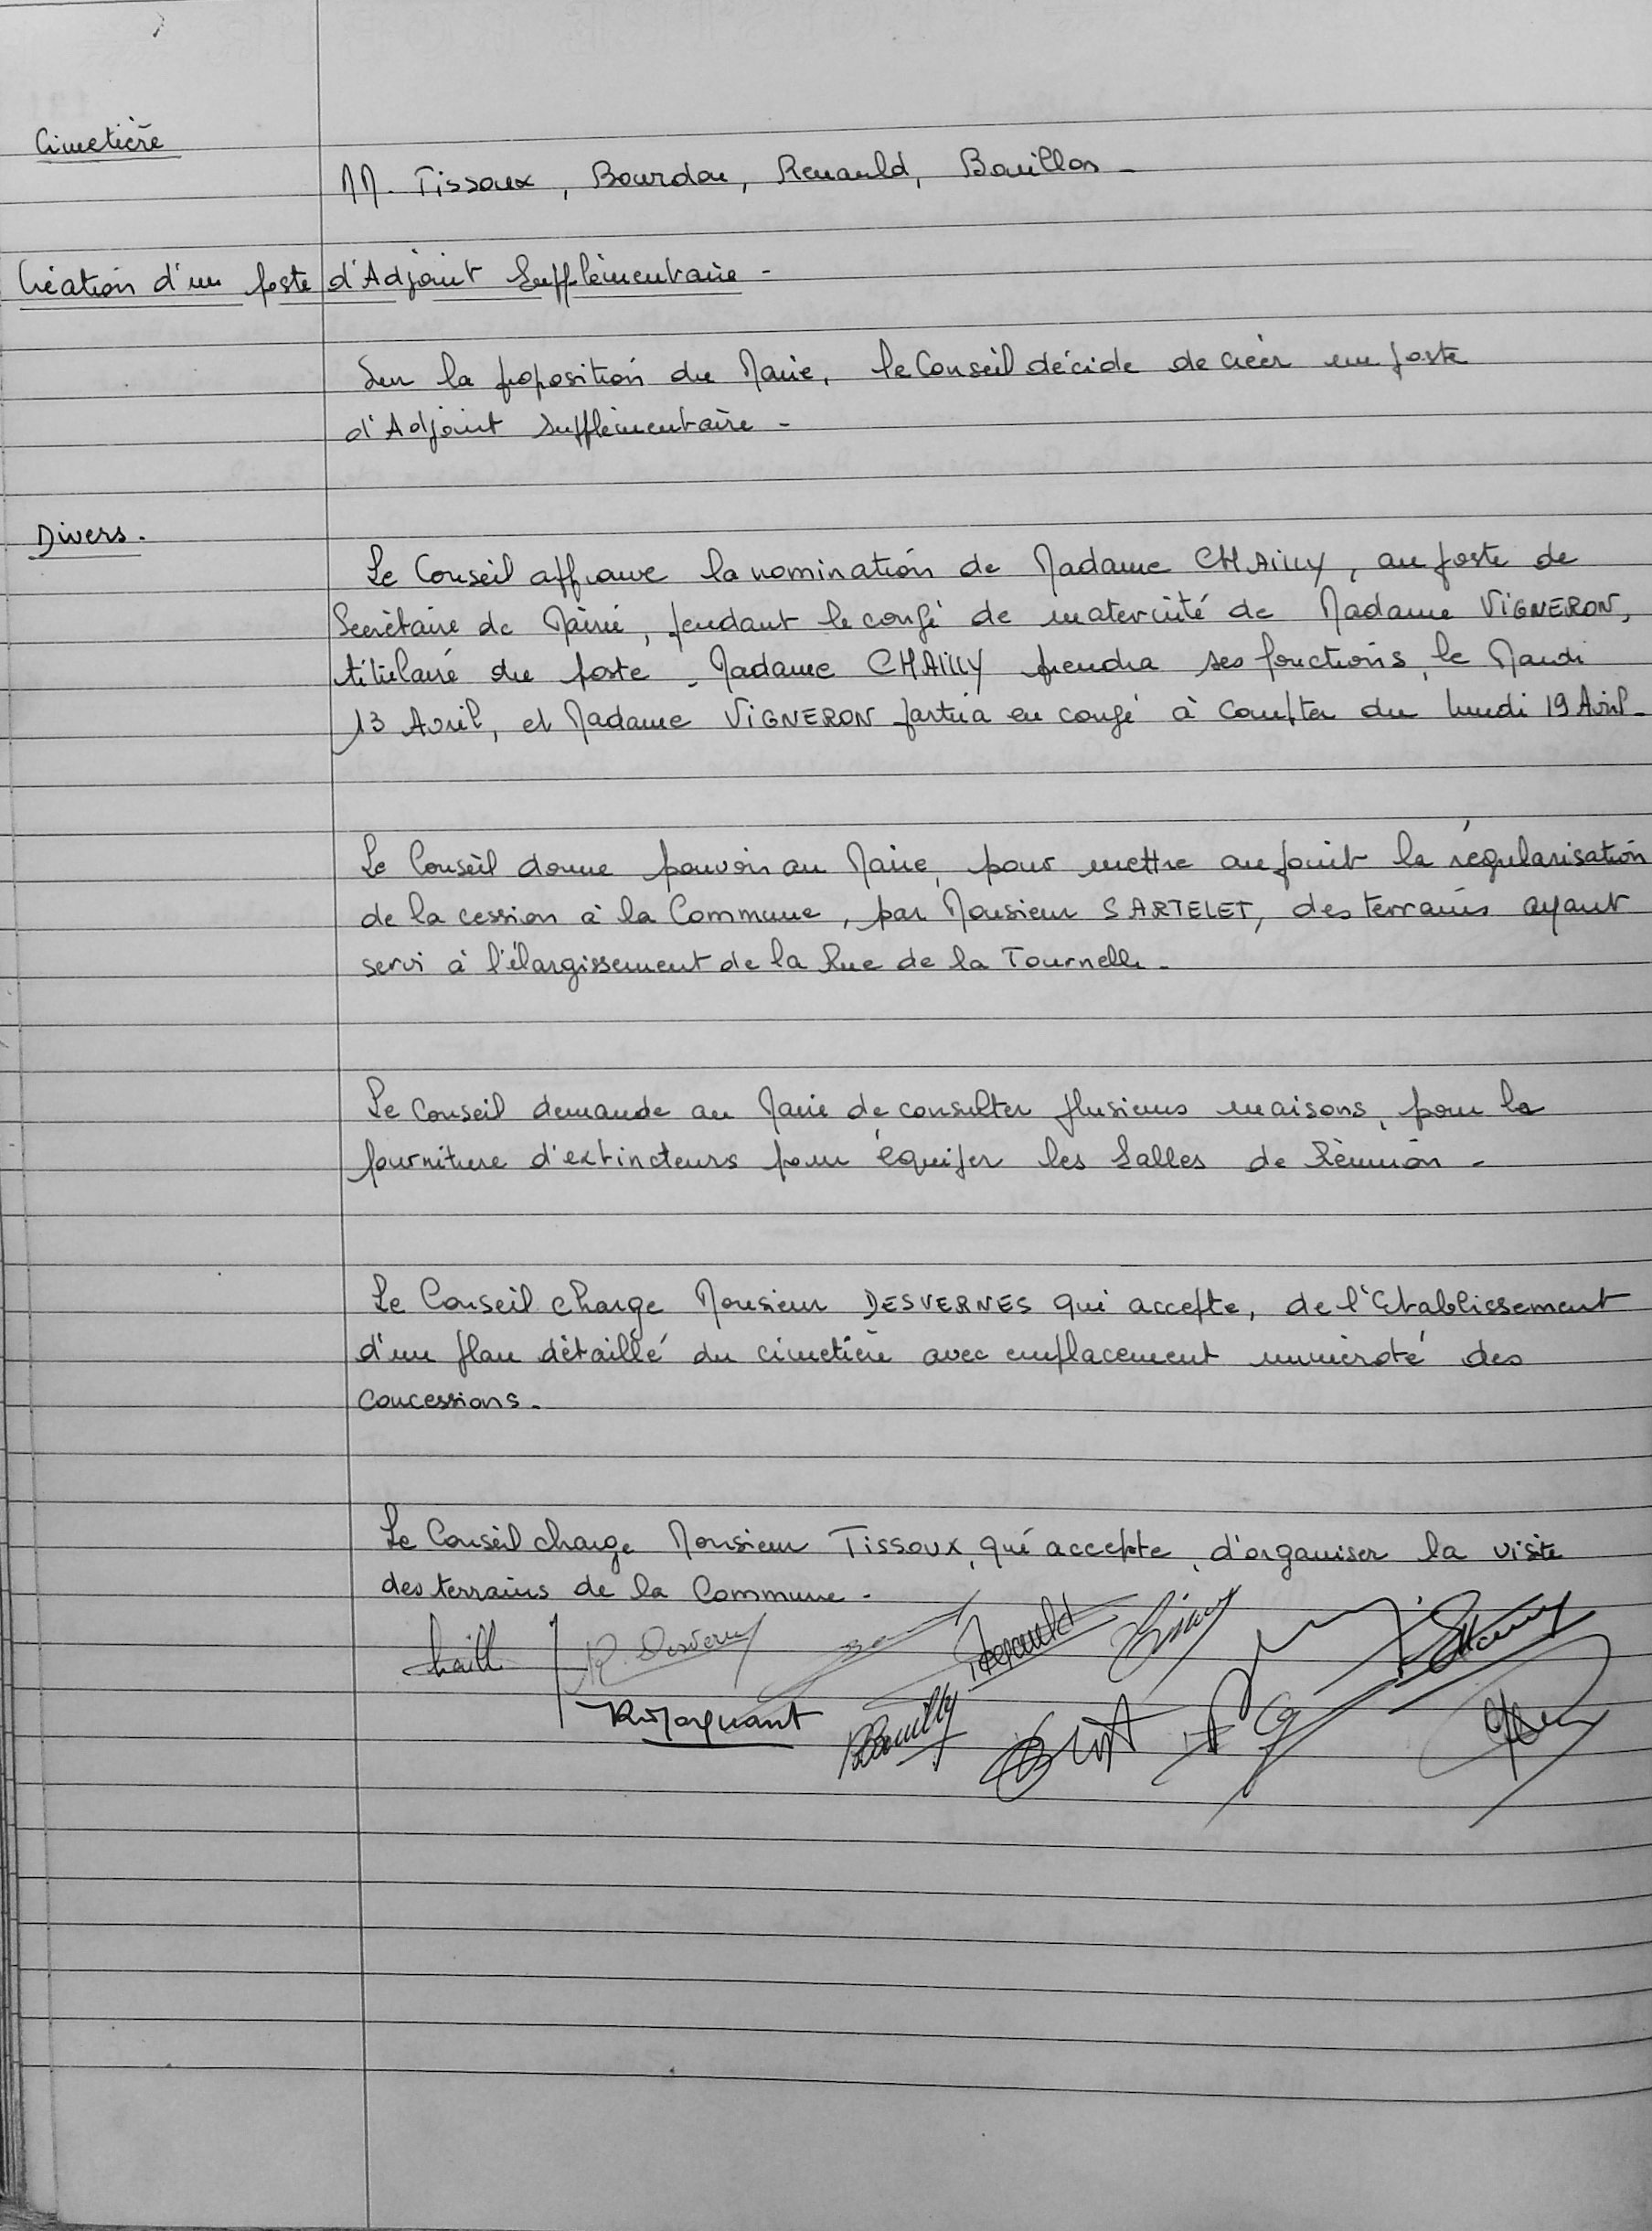 Cimetière
MM. Tissoux, Bourdon, Renauld, Bouillon -
Création d'un poste d'Adjoint Supplémentaire -
Sur la proposition du Maire, le Conseil décide de créer un poste
d'Adjoint supplémentaire -
Divers.
Le Conseil approuve la nomination de Madame CHAILLY, au poste de
Secrétaire de Mairie, pendant le congé de maternité de Madame VIGNERON,
titulaire du poste. Madame CHAILLY prendra ses fonctions, le Mardi
13 Avril, et Madame VIGNERON partira en congé à compter du lundi 19 Avril -
Le Conseil donne pouvoir au Maire, pour mettre au point la régularisation
de la cession à la Commune, par Monsieur SARTELET, des terrains ayant
servi à l'élargissement de la Rue de la Tournelle -
Le Conseil demande au Maire de consulter plusieurs maisons, pour la
fourniture d'extincteurs pour équiper les Salles de Réunion -
Le Conseil charge Monsieur DESVERNES qui accepte, de l'Etablissement
d'un plan détaillé du cimetière avec emplacement numéroté des
concessions.
Le Conseil charge Monsieur TISSOUX, qui accepte, d'organiser la visite
des terrains de la Commune -
Renauld